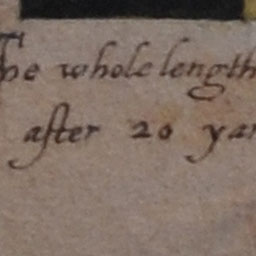 The whole length
after 20 yar